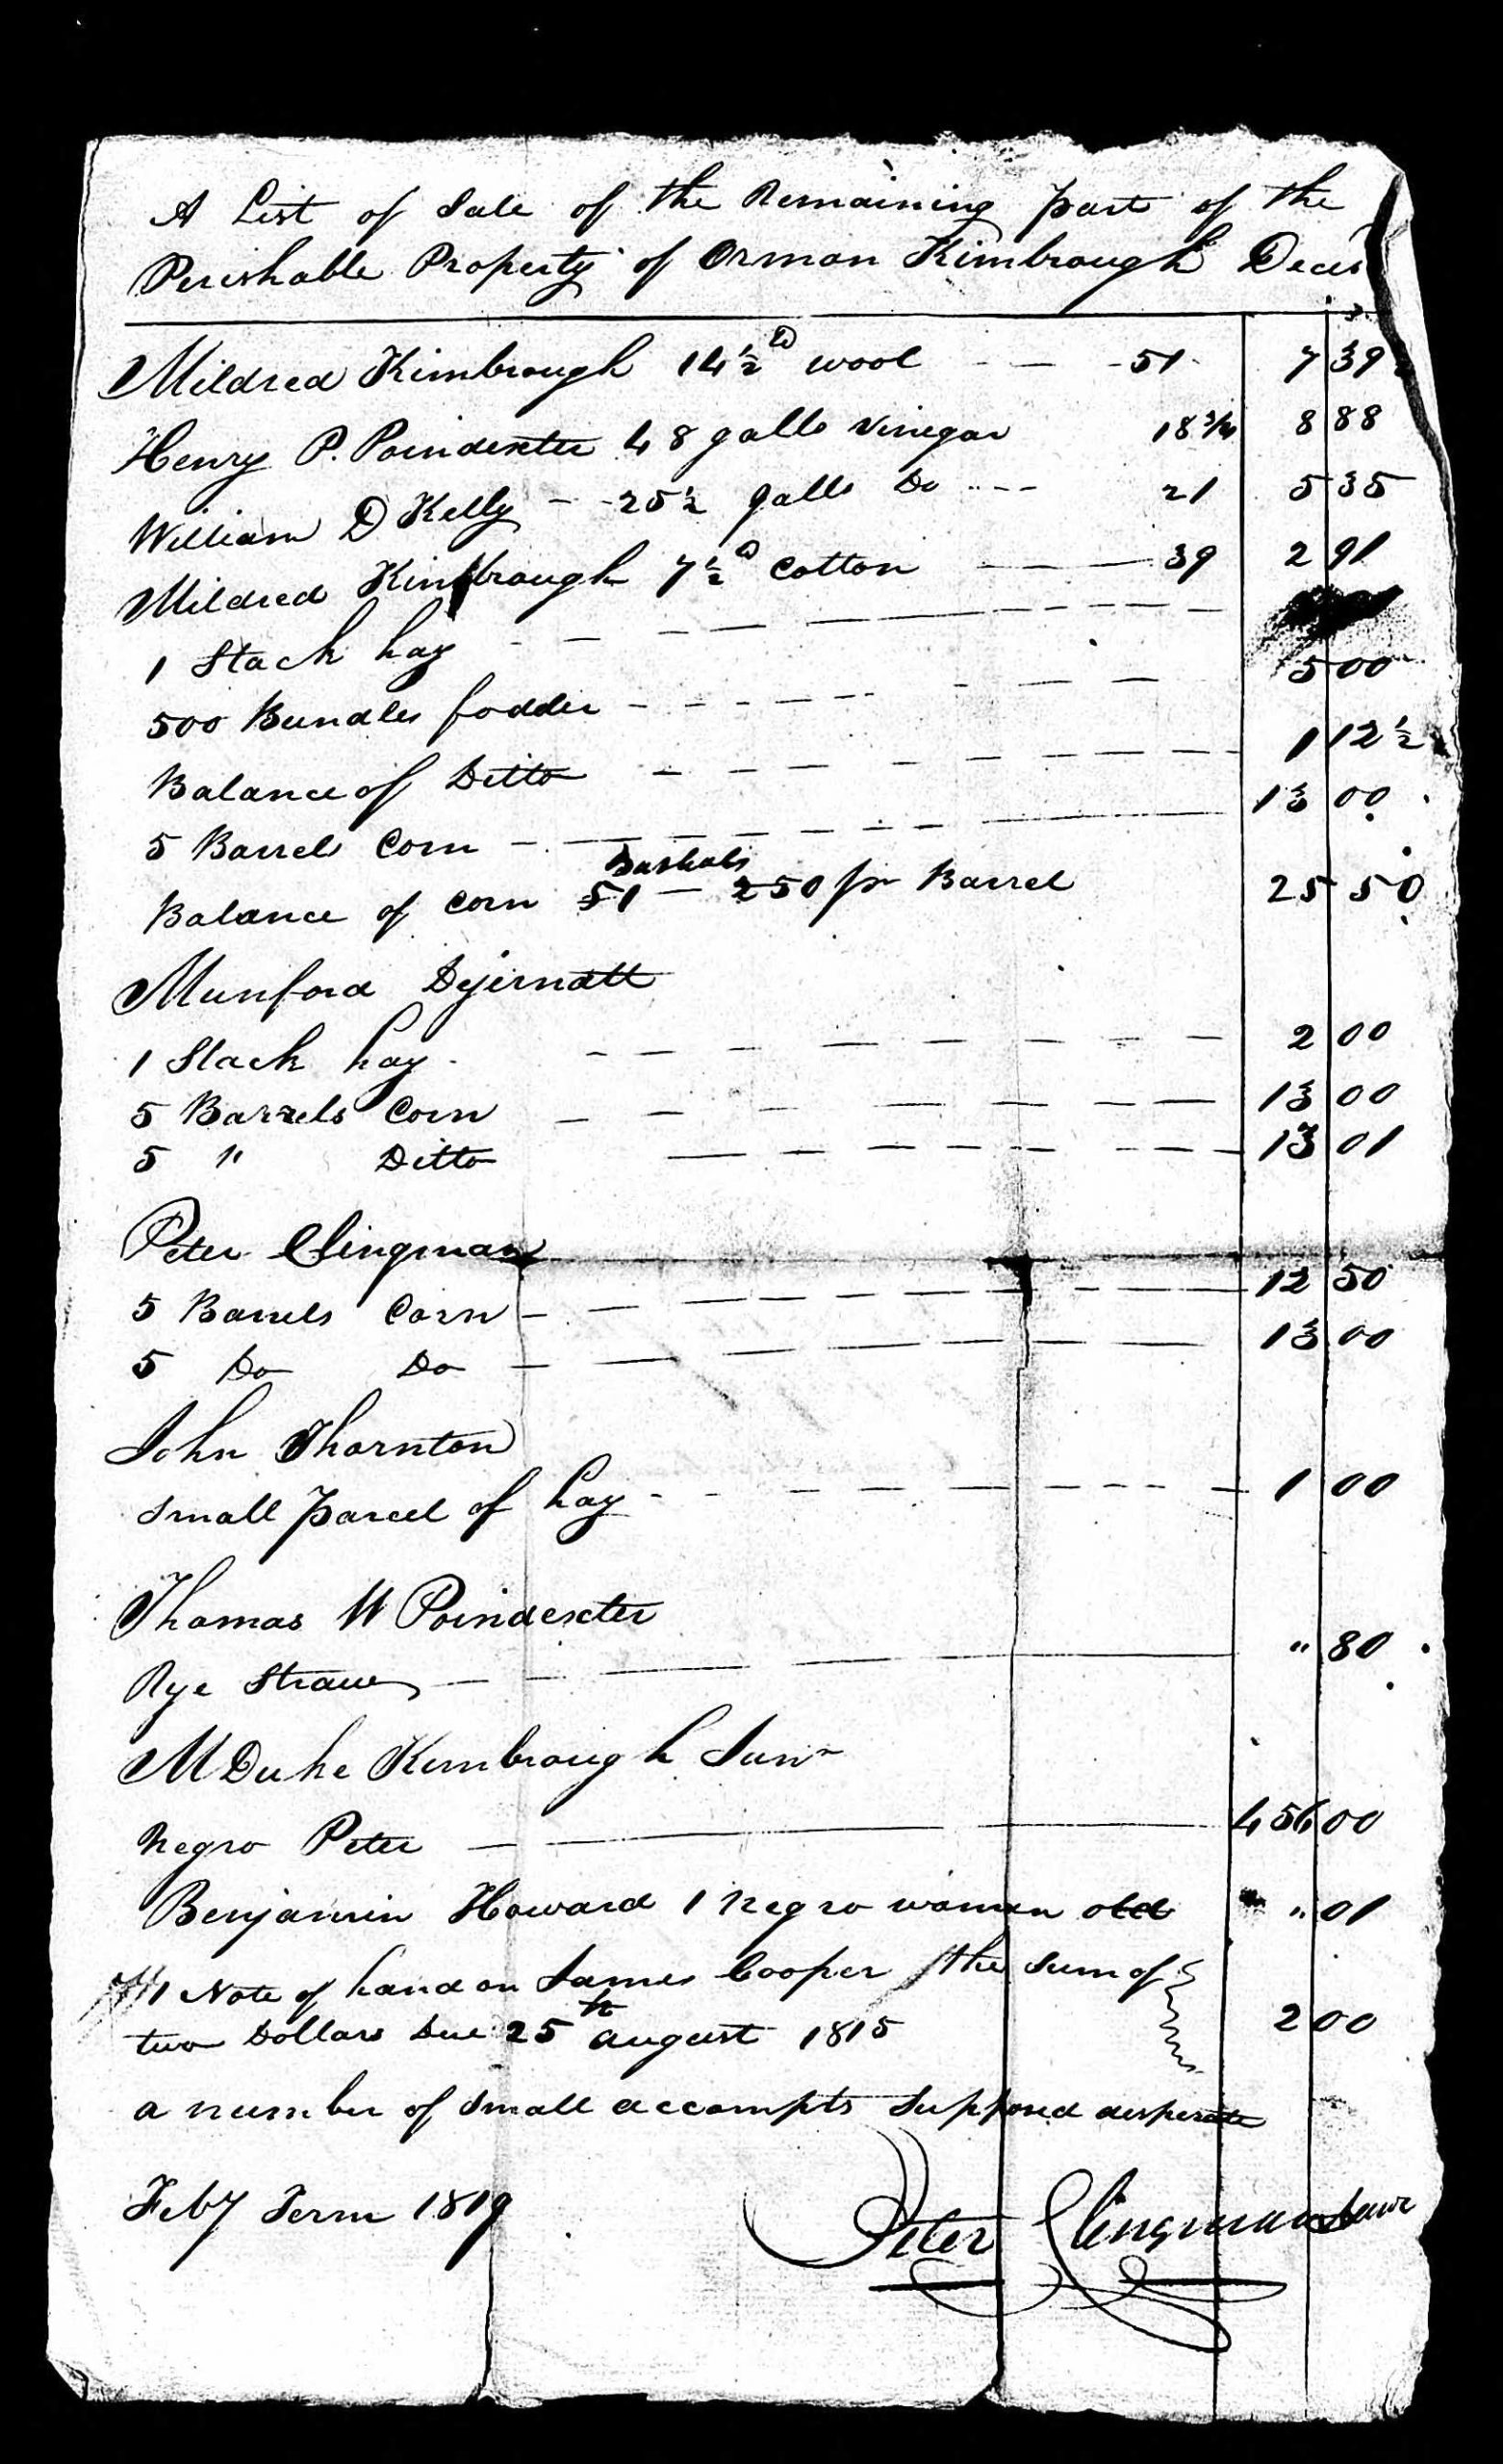 A List of Sale of the Remaining part of the
Perishable Property of Orman Kimbrough Decs
Mildred Kimbrough 14½ lb wool - - - 51 7 39
Henry P. Poindexter 48 galls vinegar 18¾ 8 88
William D Kelly - - 25½ galls Do - - - 21 5 35
Mildred Kimbrough 7½ lb Cotton - - - 39 2 91
1 Stack hay - - - - - -
500 Bundles fodder - - - - - - 5 00
Balance of Ditto - - - - - - 1 12½
5 Barrels Corn - - - - - - 13 00
Balance of Corn 51 bushels - 250 pr Barrel 25 50
Munford Dejernatt
1 Stack hay - - - - - - 2 00
5 Barrels Corn - - - - - - 13 00
5 " Ditto - - - - - - 13 01
Peter Clingman
5 Barrels Corn - - - - - - 12 50
5 Do Do - - - - - - 13 00
John Thornton
Small parcel of hay - - - - - - 1 00
Thomas W Poindexter
Rye Straw - - - " 80
M Duke Kimbrough Sunr
Negro Peter - - - 456 00
Benjamin Howard 1 negro woman old " 01
1 Note of hand on James Cooper the sum of
two Dollars Due 25th august 1815 2 00
a number of small accompts supposed desperate
Feby Term 1819
Peter Clingman